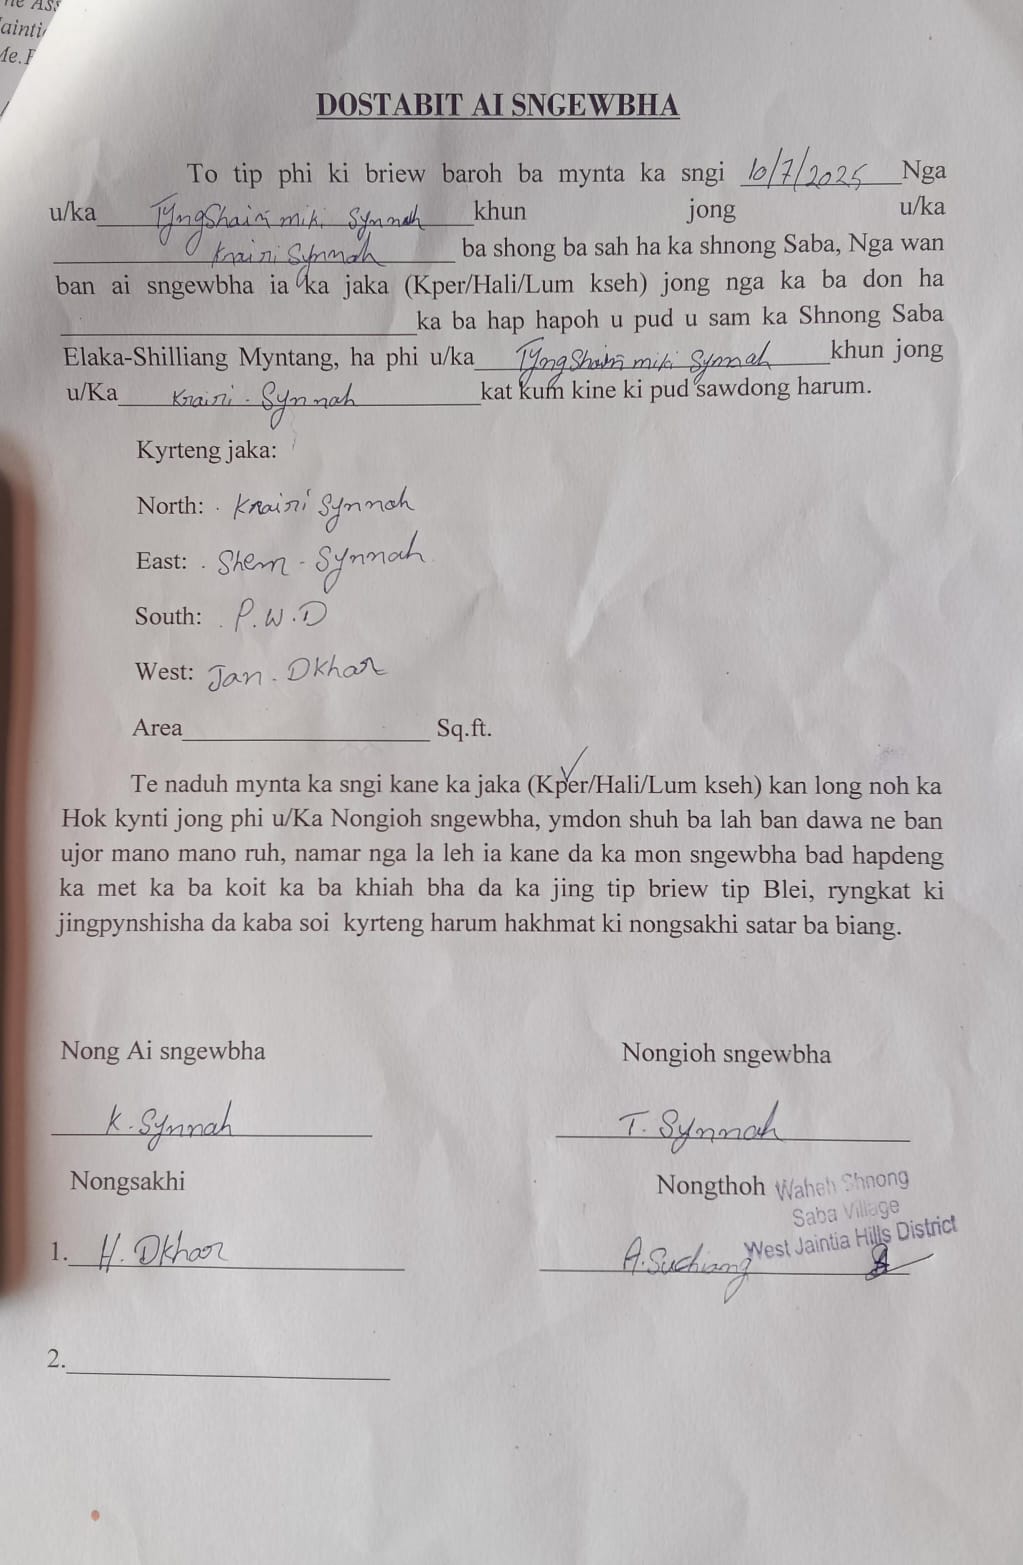 ainti
DOSTABIT AI SNGEWBHA
To tip phi ki briew baroh ba mynta ka sngi 10/7/2025 Nga
u/ka Tyngshain miki Synnah khun jong u/ka
Krairi Synnah ba shong ba sah ha ka shnong Saba, Nga wan
ban ai sngewbha ia ka jaka (Kper/Hali/Lum kseh) jong nga ka ba don ha
ka ba hap hapoh u pud u sam ka Shnong Saba
Elaka-Shilliang Myntang, ha phi u/ka Tyngshain miki Synnah khun jong
u/Ka Krairi . Synnah kat kum kine ki pud sawdong harum.
Kyrteng jaka:
North: . Krairi Synnah
East: . Shem - Synnah
South: . P.W.D
West: Jan . Dkhar
Area Sq.ft.
Te naduh mynta ka sngi kane ka jaka (Kper/Hali/Lum kseh) kan long noh ka
Hok kynti jong phi u/Ka Nongioh sngewbha, ymdon shuh ba lah ban dawa ne ban
ujor mano mano ruh, namar nga la leh ia kane da ka mon sngewbha bad hapdeng
ka met ka ba koit ka ba khiah bha da ka jing tip briew tip Blei, ryngkat ki
jingpynshisha da kaba soi kyrteng harum hakhmat ki nongsakhi satar ba biang.
Nong Ai sngewbha Nongioh sngewbha
K. Synnah T. Synnah
Nongsakhi Nongthoh Waheh Shnong
Saba Village
West Jaintia Hills District
1. H. Dkhar A. Suchiang
2.